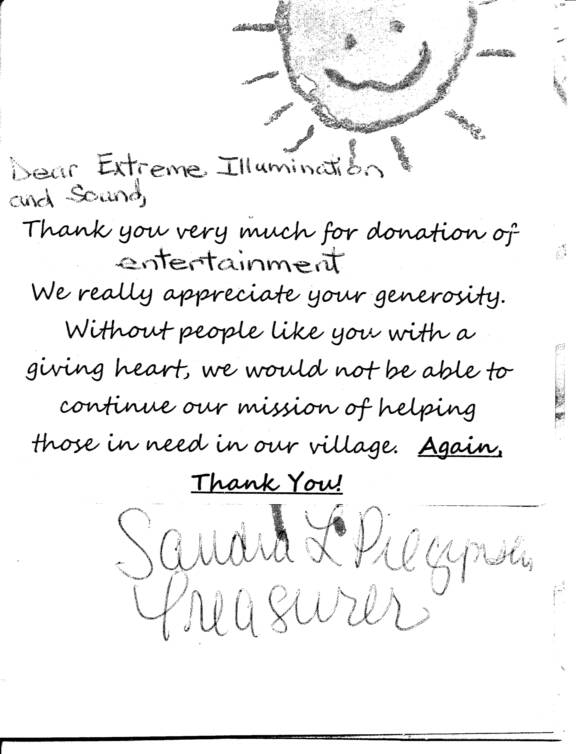 Dear Extreme Illumination
and Sound,
Thank you very much for donation of
entertainment
We really appreciate your generosity.
Without people like you with a
giving heart, we would not be able to
continue our mission of helping
those in need in our village. Again,
Thank You!
Sandra L
Treasurer